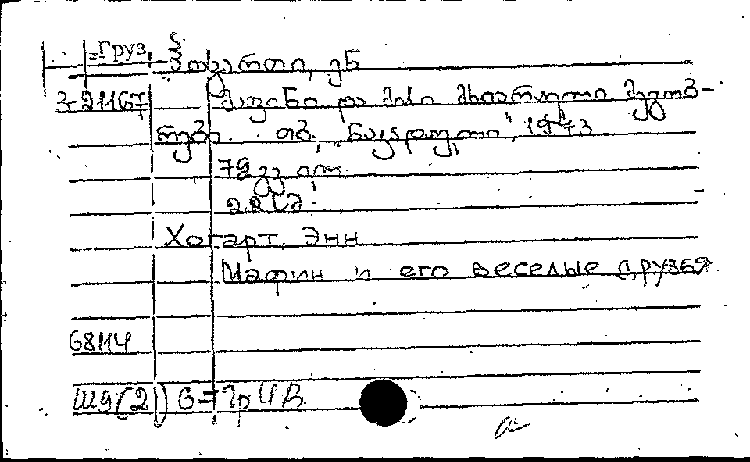 Груз
ჰოგართი, ენ
3-21167 მაფინი და მისი მხიარული მეგობ-
რები. თბ., ნაკადული, 1973
79 გვ.
22 სმ.
Хогарт, Энн
Мафин и его веселые друзья
68114